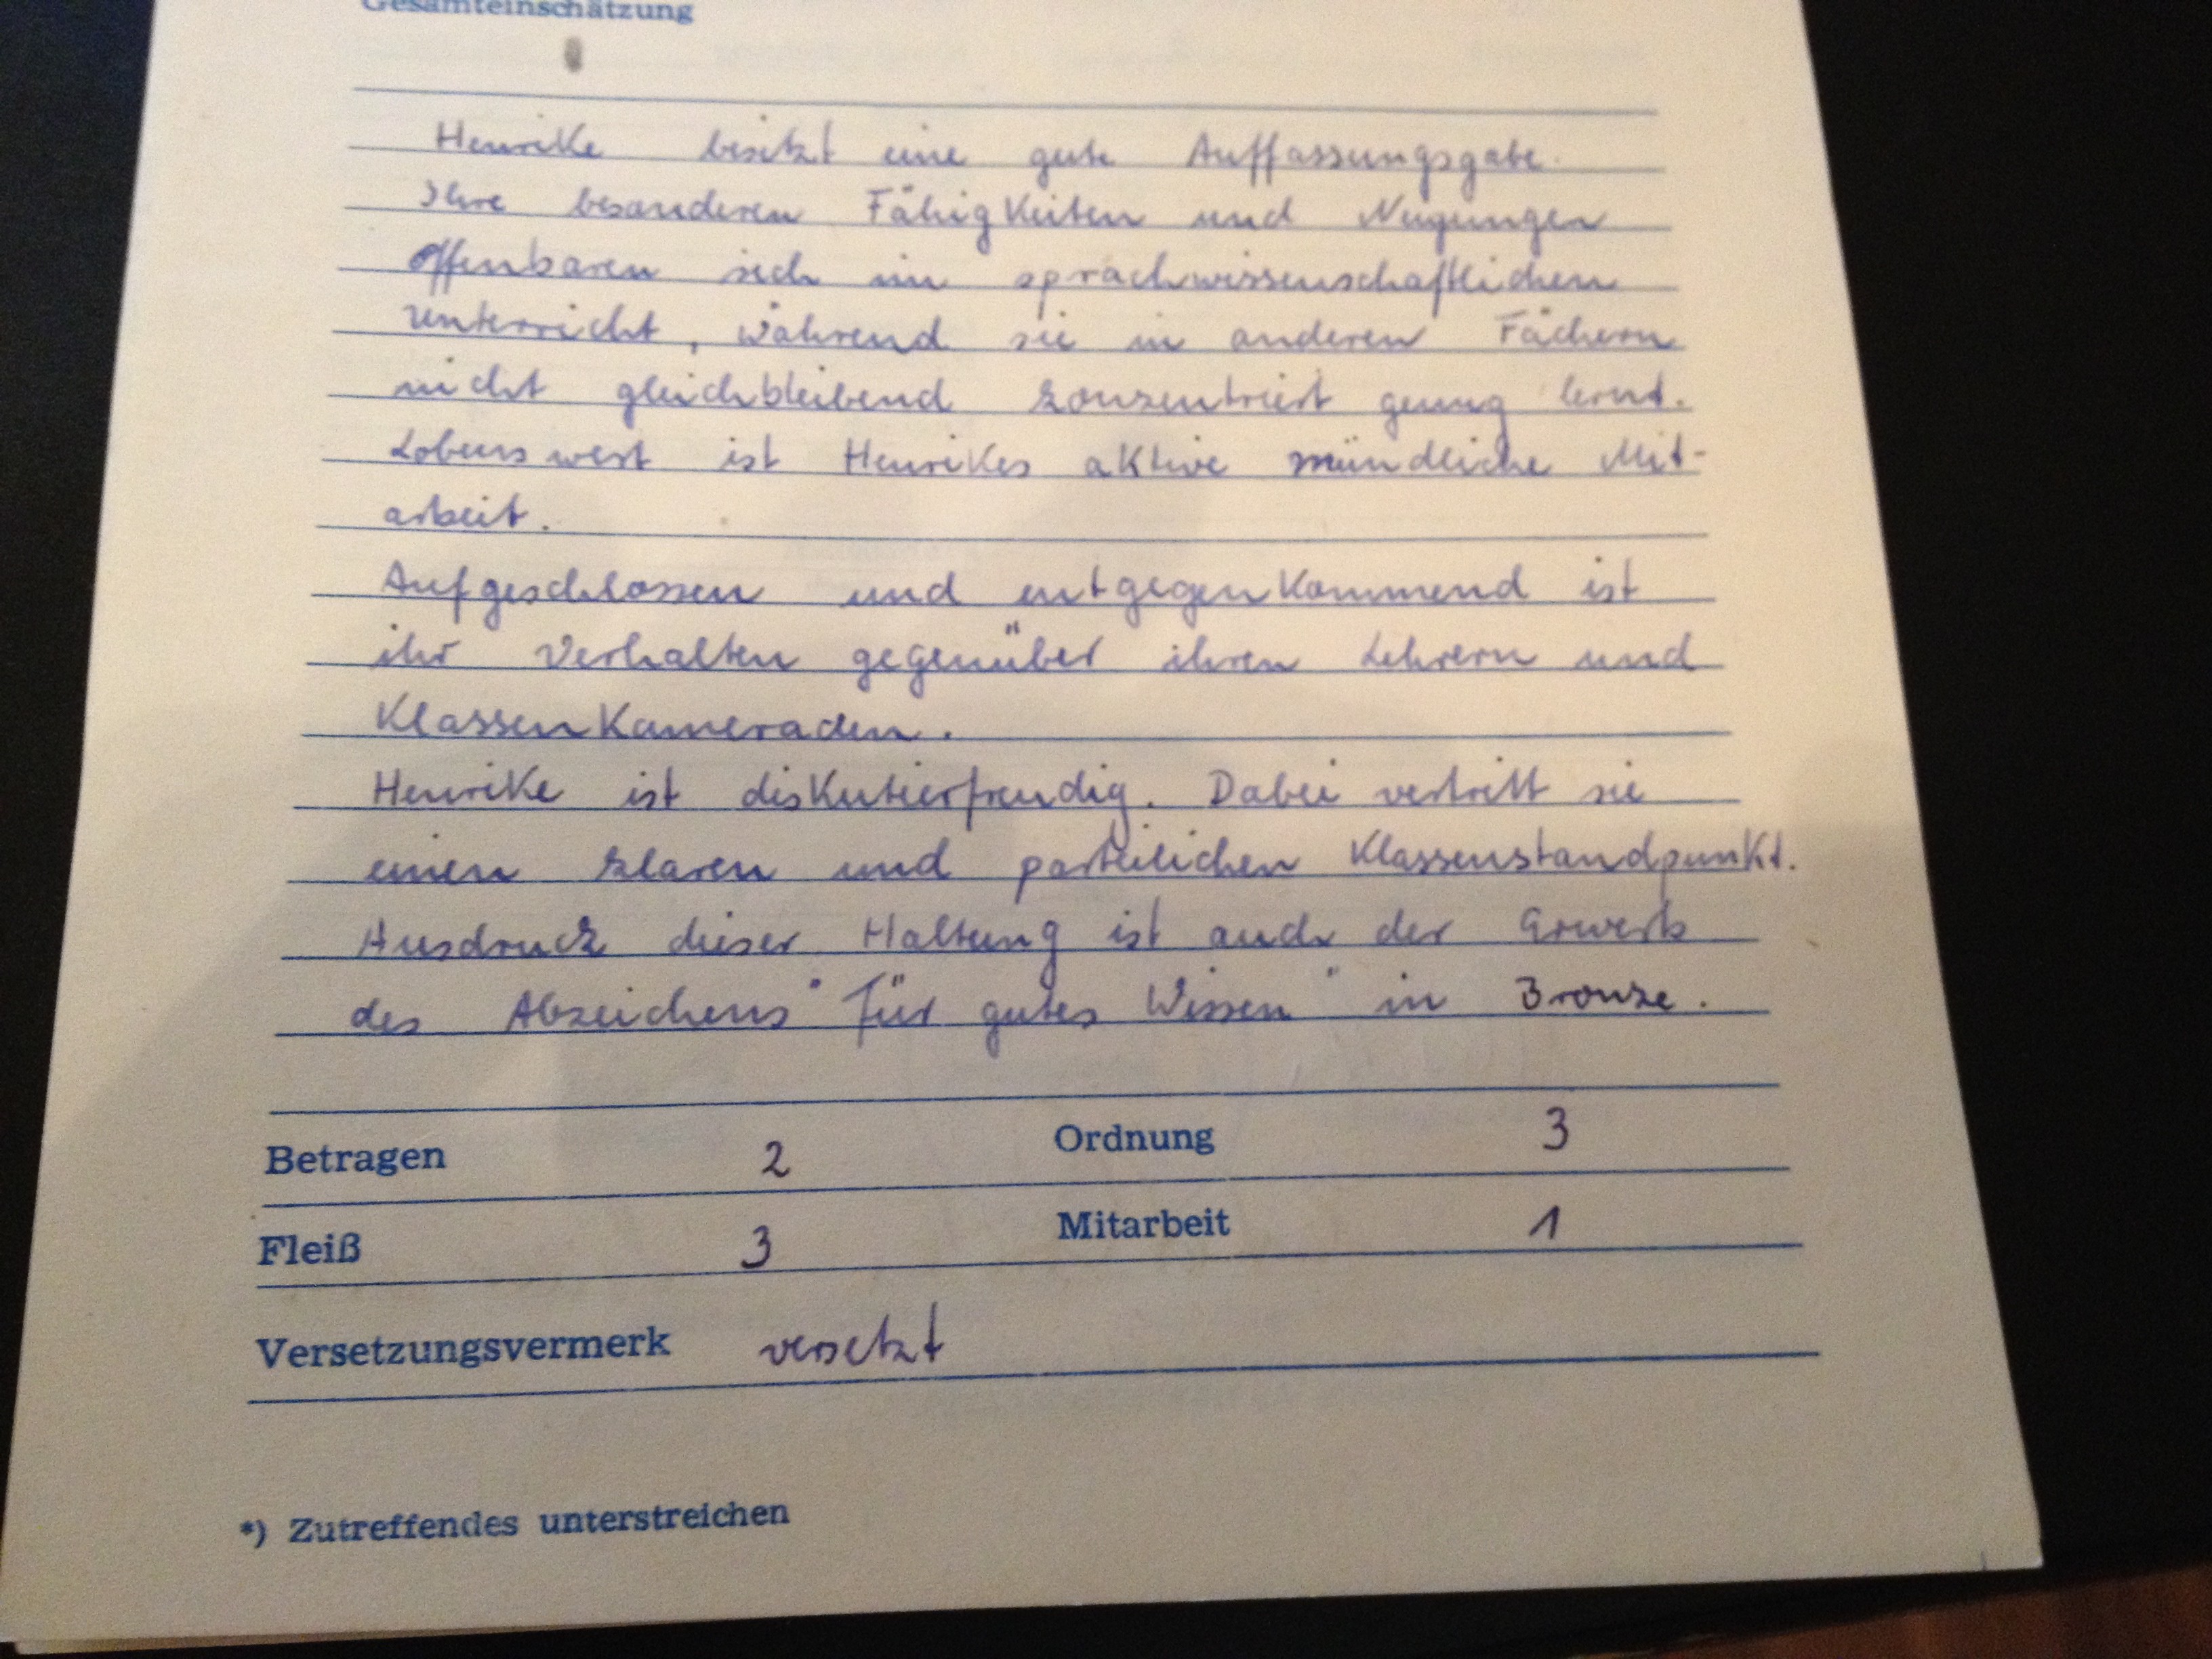 Gesamteinschätzung
Henrike besitzt eine gute Auffassungsgabe.
Ihre besonderen Fähigkeiten und Neigungen
offenbaren sich im sprachwissenschaftlichen
Unterricht, während sie in anderen Fächern
nicht gleichbleibend konzentriert genug lernt.
Lobenswert ist Henrikes aktive mündliche Mit-
arbeit.
Aufgeschlossen und entgegenkommend ist
ihr Verhalten gegenüber ihren Lehrern und
Klassenkameraden.
Henrike ist diskutierfreudig. Dabei vertritt sie
einen klaren und parteilichen Klassenstandpunkt.
Ausdruck dieser Haltung ist auch der Erwerb
des Abzeichens "Für gutes Wissen" in Bronze.
Betragen 2 Ordnung 3
Fleiß 3 Mitarbeit 1
Versetzungsvermerk versetzt
*) Zutreffendes unterstreichen